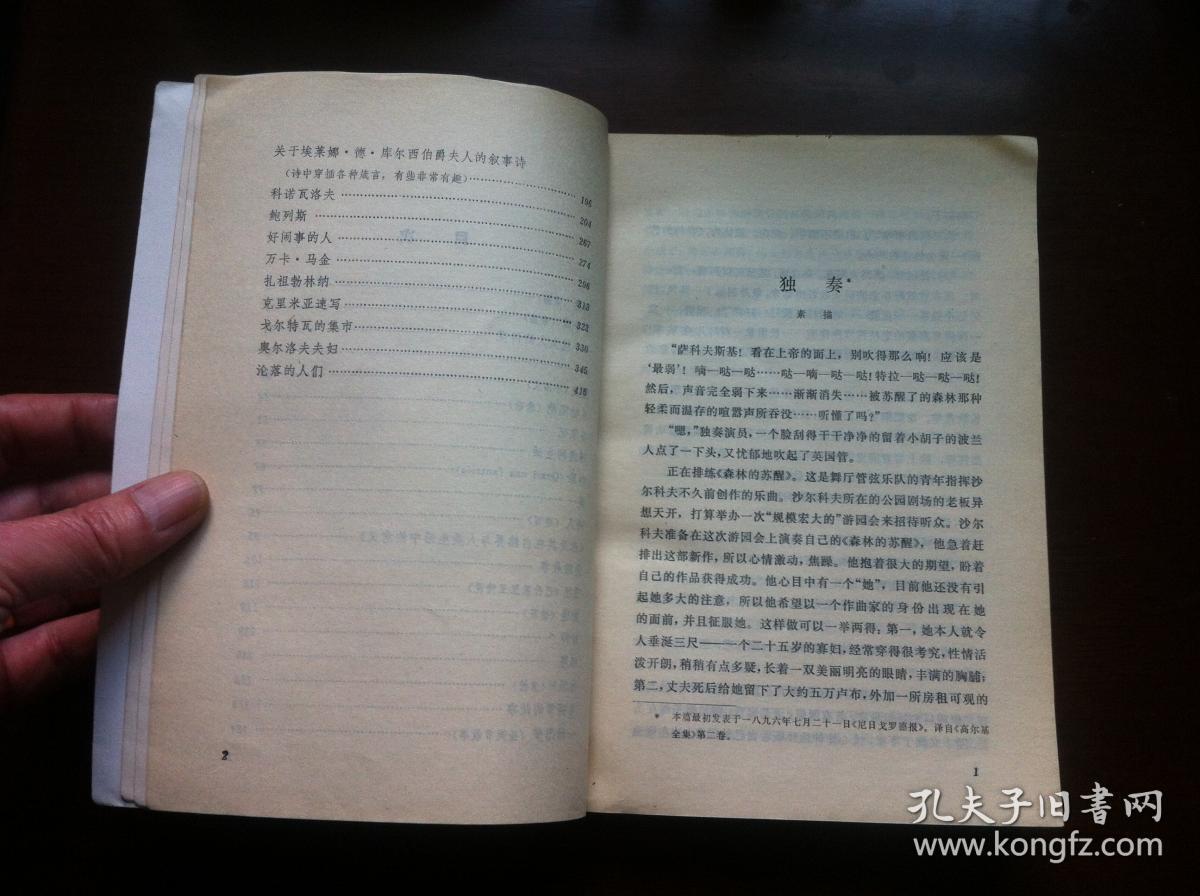 关于埃莱娜·德·库尔西伯爵夫人的叙事诗
（诗中穿插各种箴言，有些非常有趣）…………196
科诺瓦洛夫…………204
鲍列斯…………267
好闹事的人…………274
万卡·马金…………296
扎祖勃林纳…………313
克里米亚速写…………323
戈尔特瓦的集市…………330
奥尔洛夫夫妇…………345
沦落的人们…………416
2
独 奏*
素 描
“萨科夫斯基！看在上帝的面上，别吹得那么响！应该是
‘最弱’！嘀—哒—哒……哒—嘀—哒—哒！特拉—哒—哒—哒！
然后，声音完全弱下来……渐渐消失……被苏醒了的森林那种
轻柔而温存的喧嚣声所吞没……听懂了吗？”
“嗯，”独奏演员，一个脸刮得干干净净的留着小胡子的波兰
人点了一下头，又忧郁地吹起了英国管。
正在排练《森林的苏醒》。这是舞厅管弦乐队的青年指挥沙
尔科夫不久前创作的乐曲。沙尔科夫所在的公园剧场的老板异
想天开，打算举办一次“规模宏大的”游园会来招待听众。沙尔
科夫准备在这次游园会上演奏自己的《森林的苏醒》，他急着赶
排出这部新作，所以心情激动，焦躁。他抱着很大的期望，盼着
自己的作品获得成功。他心目中有一个“她”，目前他还没有引
起她多大的注意，所以他希望以一个作曲家的身份出现在她
的面前，并且征服她。这样做可以一举两得：第一，她本人就令
人垂涎三尺——一个二十五岁的寡妇，经常穿得很考究，性情活
泼开朗，稍稍有点多疑，长着一双美丽明亮的眼睛，丰满的胸脯；
第二，丈夫死后给她留下了大约五万卢布，外加一所房租可观的
* 本篇最初发表于一八九六年七月二十一日《尼日戈罗德报》，译自《高尔基
全集》第二卷。
1
孔夫子旧书网
www.kongfz.com